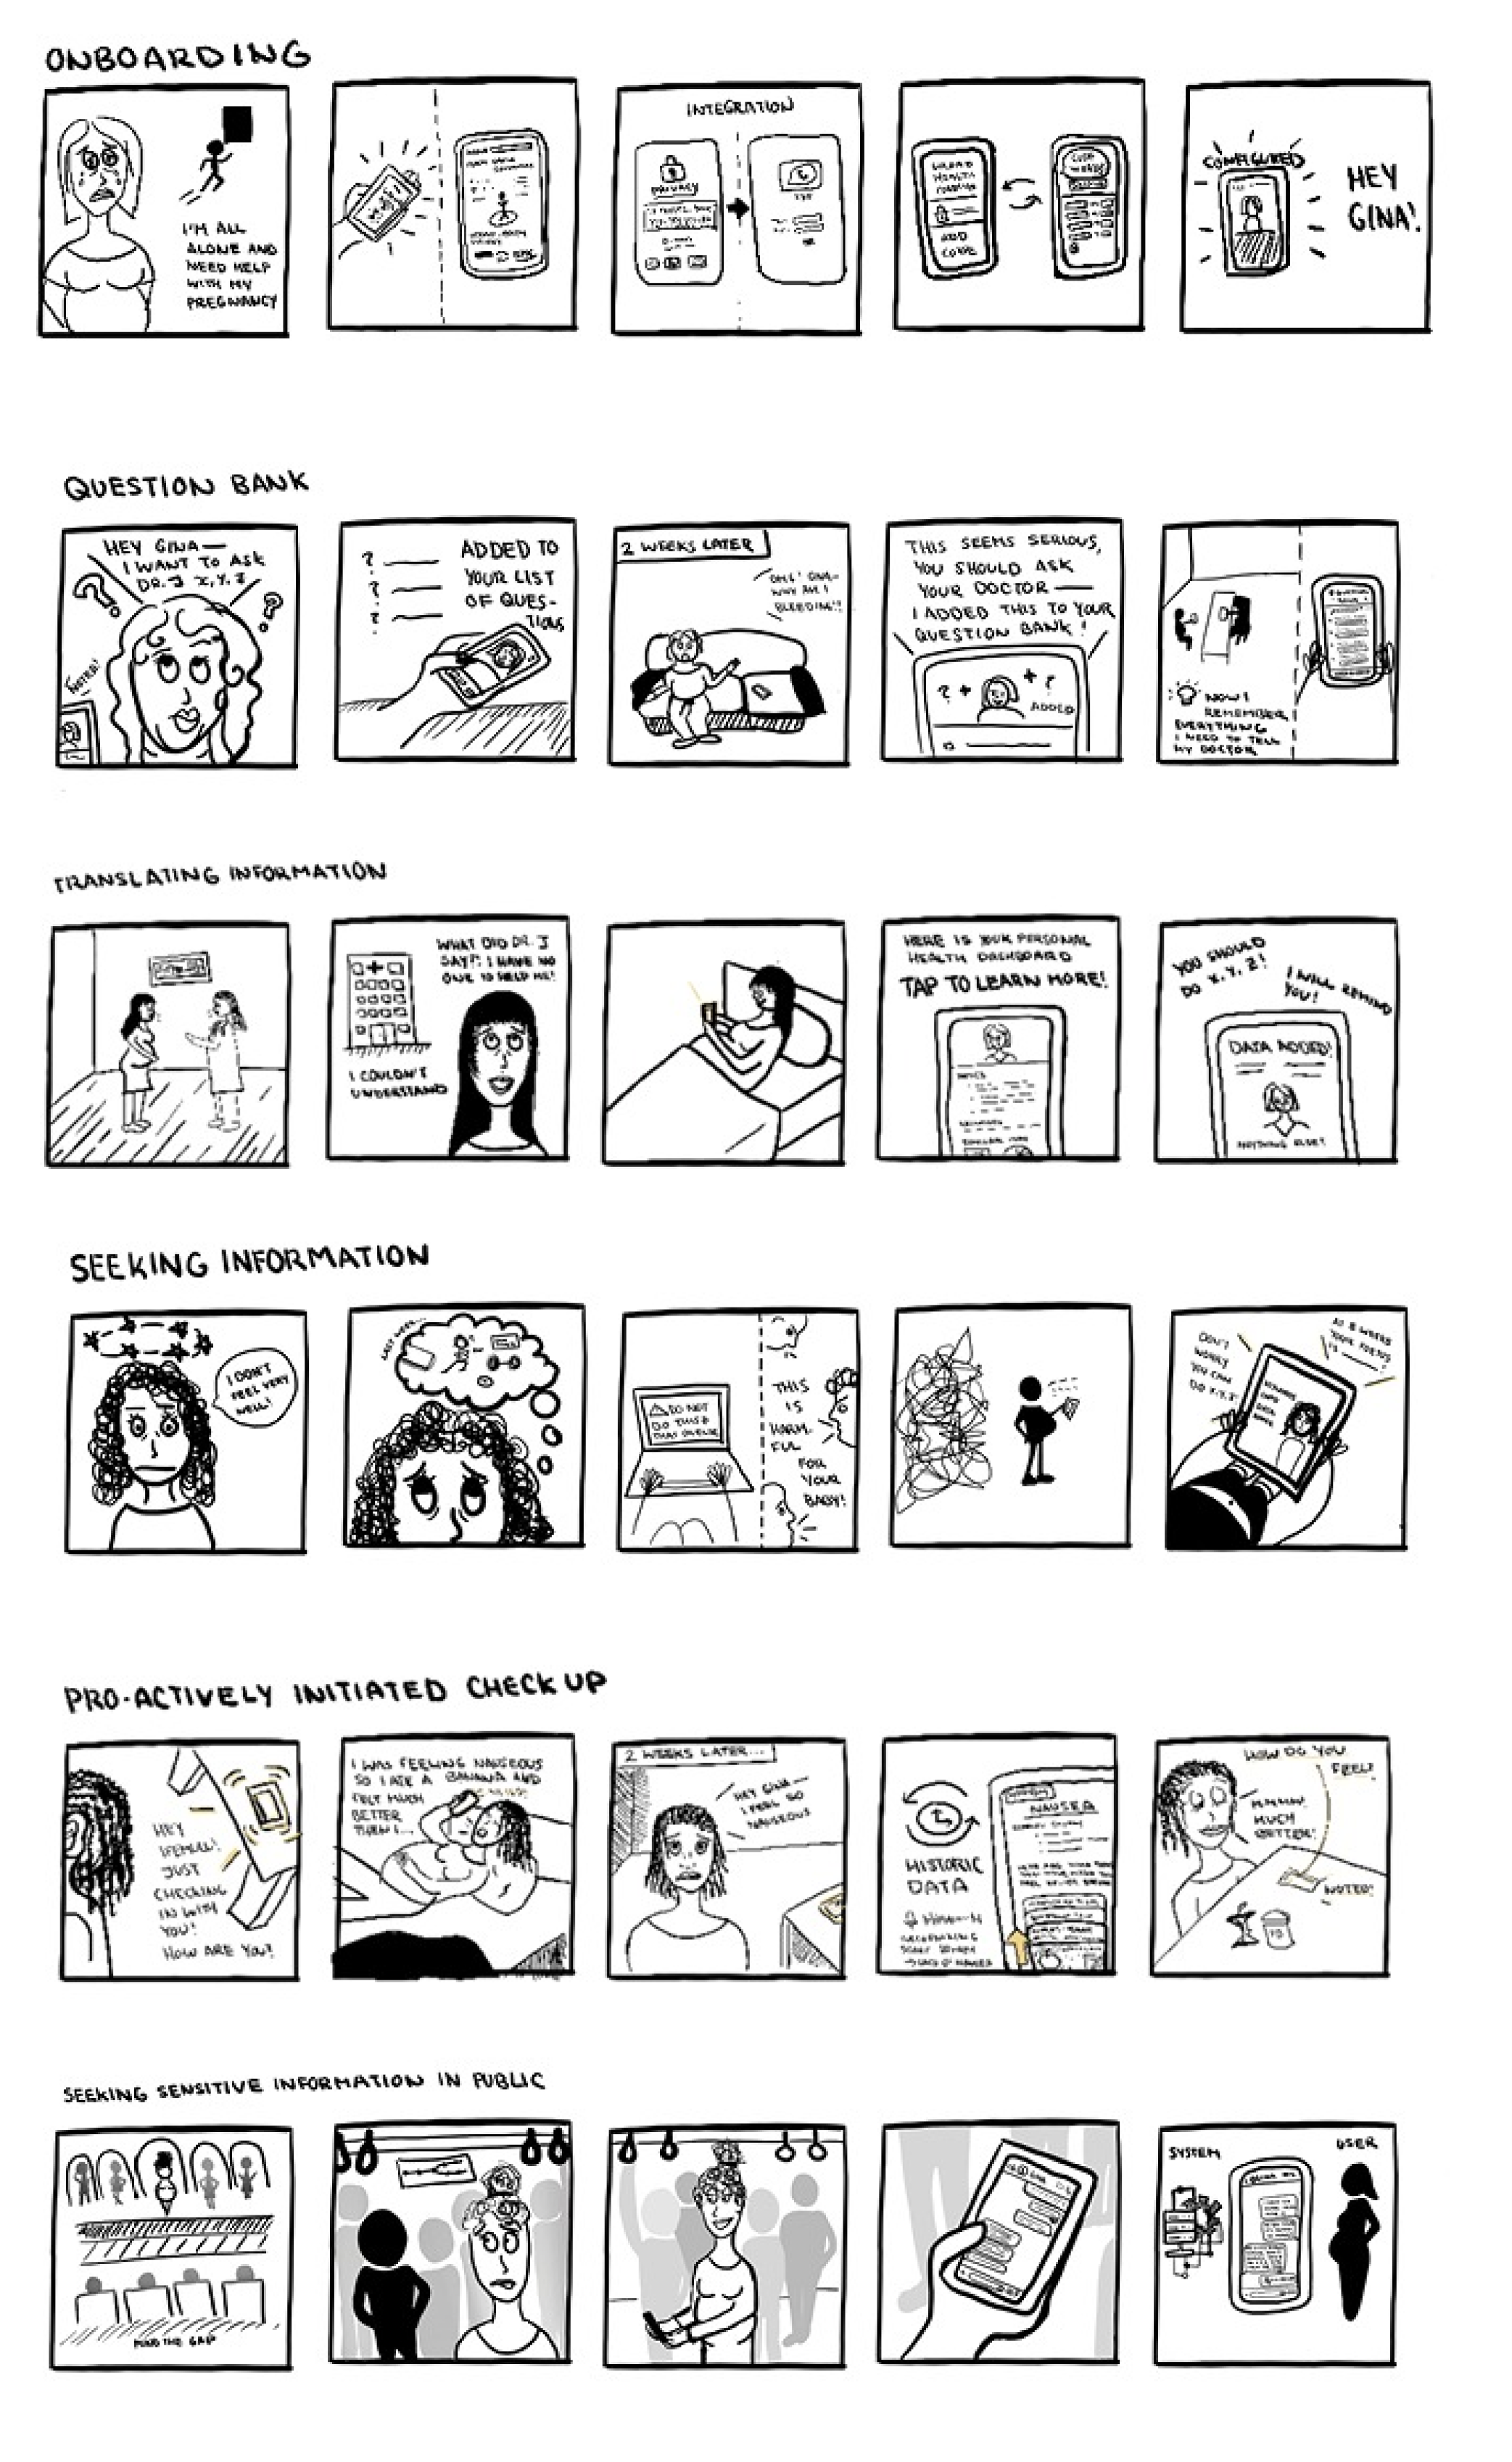 ONBOARDING
I'M ALL
ALONE AND
NEED HELP
WITH MY
PREGNANCY
INTEGRATION
PRIVACY
ADD
CODE
CONFIGURED
HEY
GINA!
QUESTION BANK
HEY GINA—
I WANT TO ASK
DR. J X, Y, Z
NOTED!
?
?
?
?
ADDED TO
YOUR LIST
OF QUES-
TIONS
2 WEEKS LATER
OMG! GINA—
WHY AM I
BLEEDING!?
THIS SEEMS SERIOUS,
YOU SHOULD ASK
YOUR DOCTOR—
I ADDED THIS TO YOUR
QUESTION BANK!
? +
+ ?
ADDED
NOW I
REMEMBER
EVERYTHING
I NEED TO TELL
MY DOCTOR
TRANSLATING INFORMATION
WHAT DID DR. J
SAY?! I HAVE NO
ONE TO HELP ME!
I COULDN'T
UNDERSTAND
HERE IS YOUR PERSONAL
HEALTH DASHBOARD
TAP TO LEARN MORE!
YOU SHOULD
DO X, Y, Z!
I WILL REMIND
YOU!
DATA ADDED!
ANYTHING ELSE?
SEEKING INFORMATION
I DON'T
FEEL VERY
WELL!
LAST WEEK...
DO NOT
DO THIS &
THIS
IS
HARM-
FUL
FOR
YOUR
BABY!
DON'T
WORRY
YOU CAN
DO X, Y, Z
AT 8 WEEKS
YOUR FETUS
IS
PRO-ACTIVELY INITIATED CHECK UP
HEY
JUST
CHECKING
IN WITH
YOU!
HOW ARE YOU?
I WAS FEELING NAUSEOUS
SO I ATE A BANANA AND
FELT MUCH
BETTER
THEN I...
2 WEEKS LATER...
HEY GINA—
I FEEL SO
NAUSEOUS
HISTORIC
DATA
NAUSEA
HOW DO YOU
FEEL?
MUCH
BETTER!
NOTED!
SEEKING SENSITIVE INFORMATION IN PUBLIC
MIND THE GAP
SYSTEM
USER